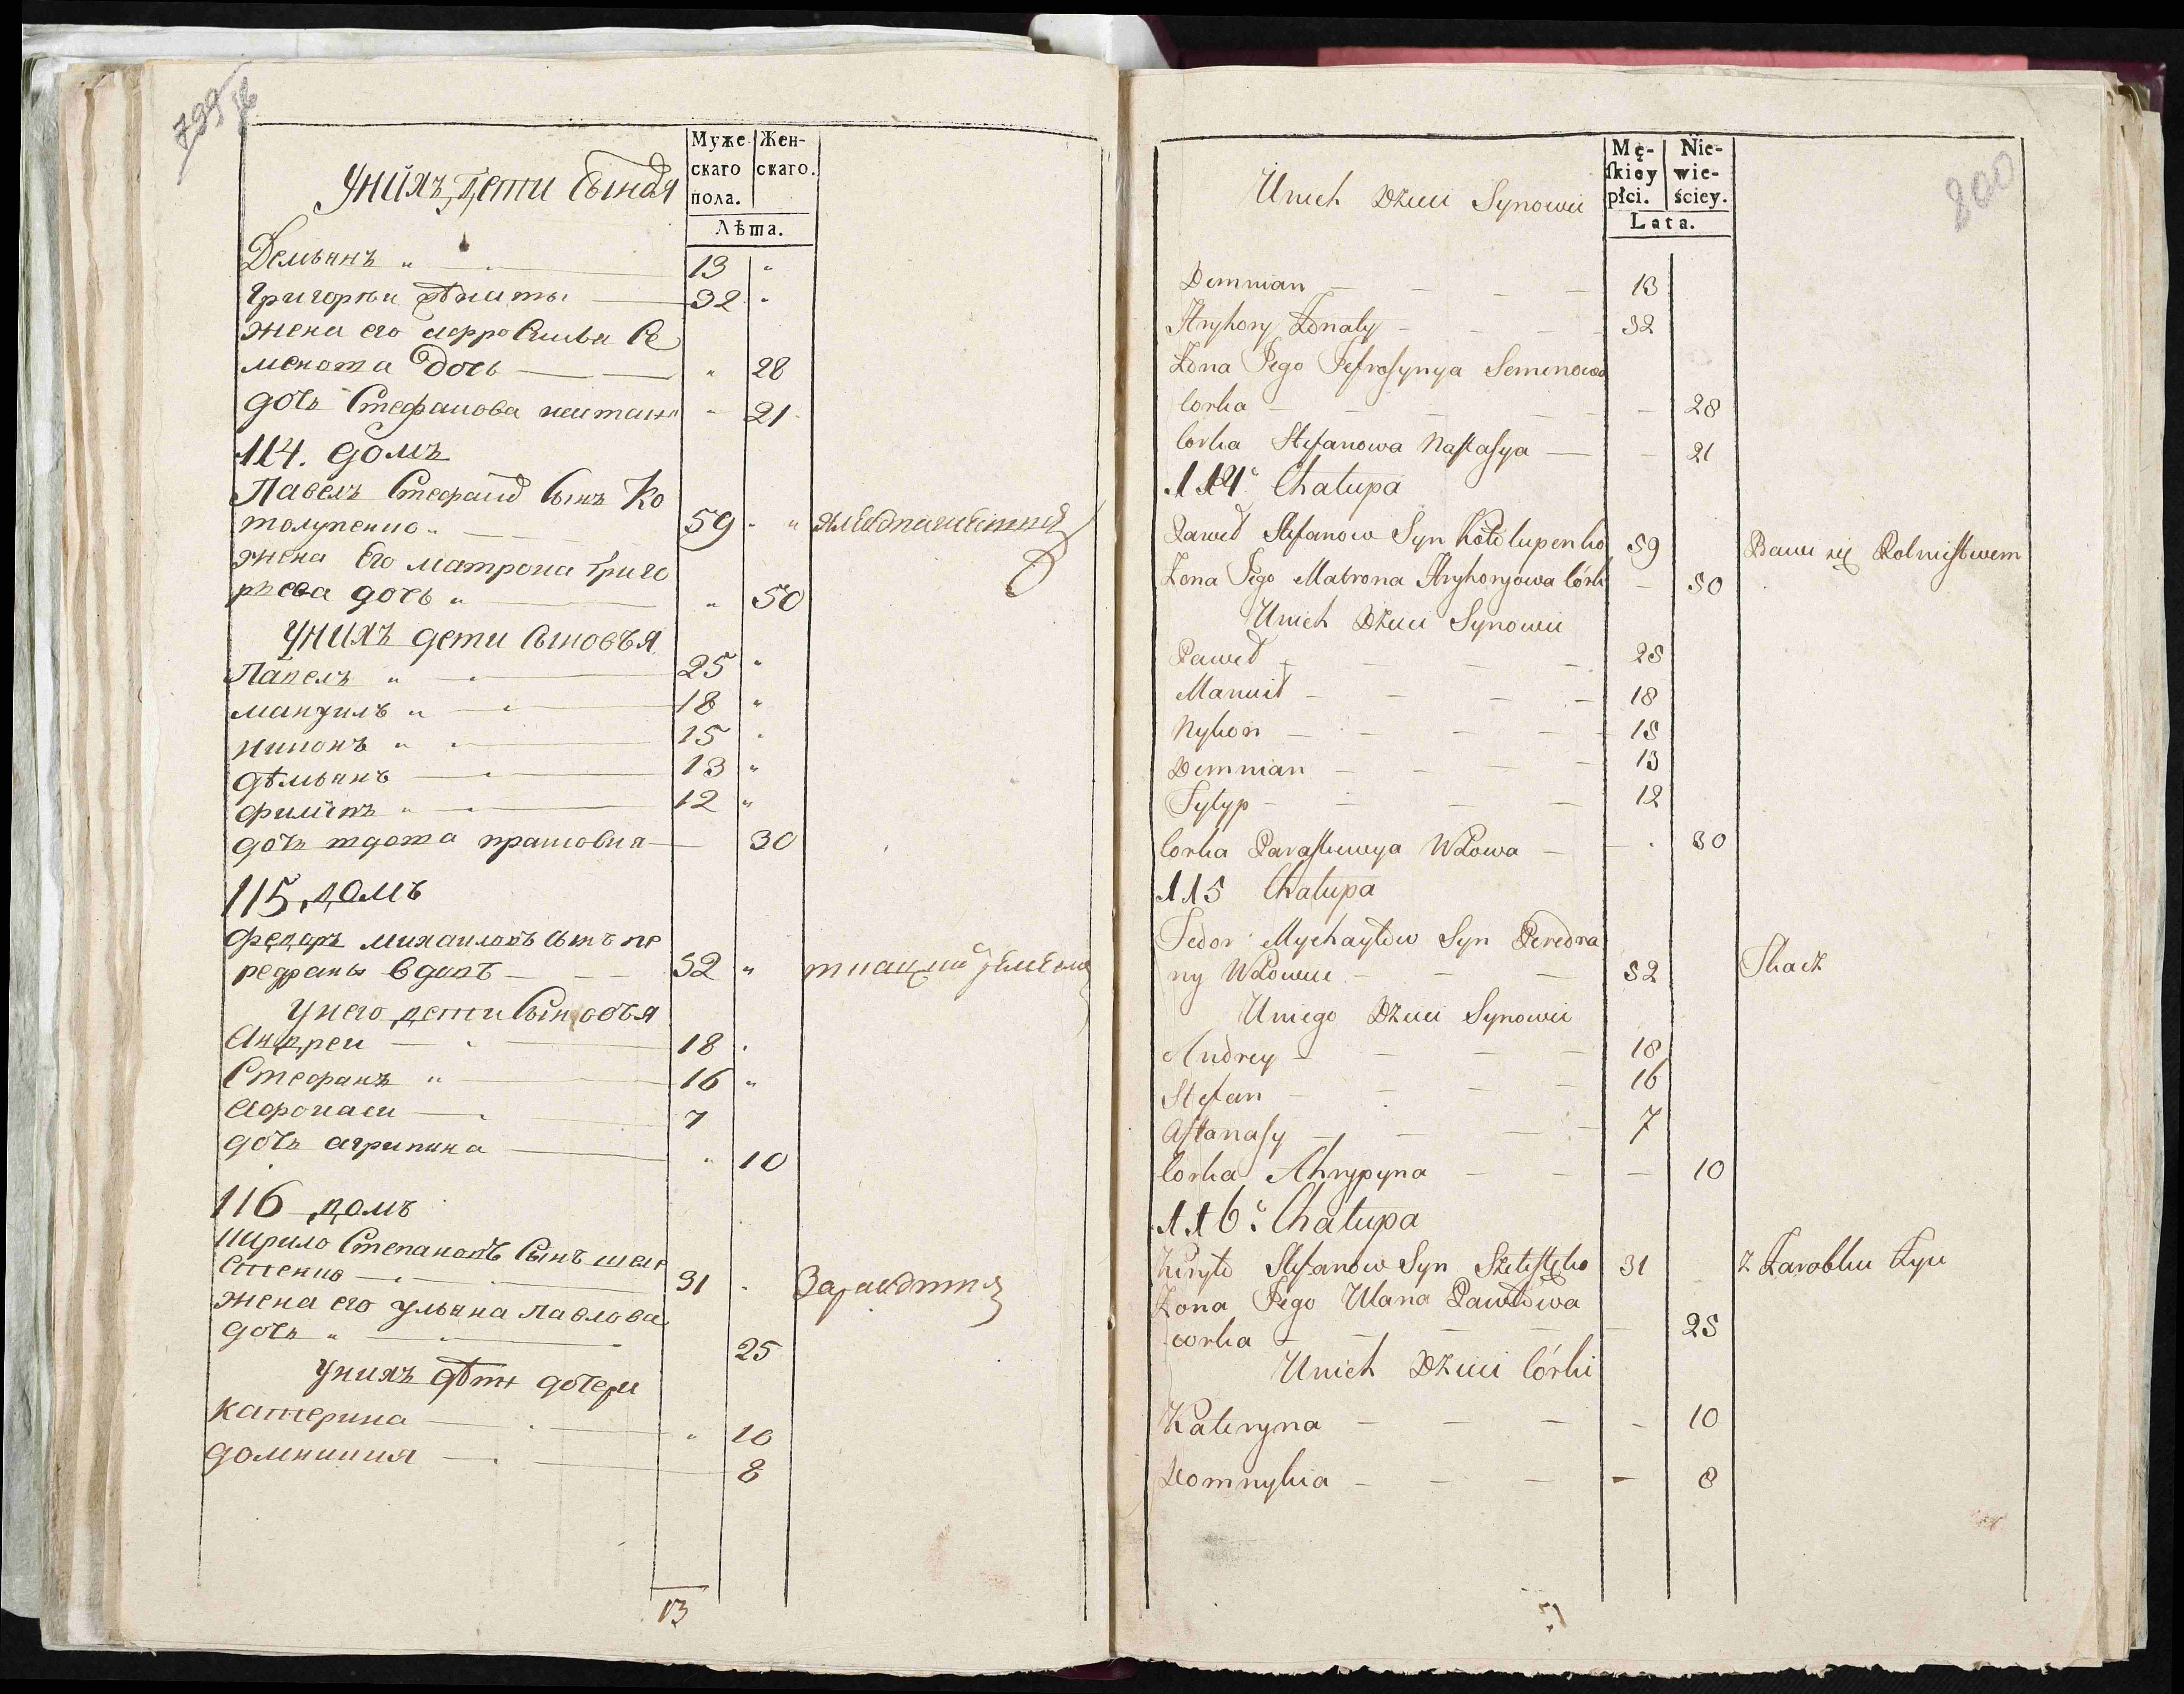 799
Унихъ дети Сынвя
Муже-
скаго
пола.
Жен-
скаго.
Лѣта.
Демьянъ " 13 "
Григорѣи 32 "
жена его Се
менота дочь " 28
дочь Стефанова " 21
114. домъ
Павелъ Стефанов Сынъ Ко
толупенко " 59 " "
жена Его матрона Григо
рьева дочь " " 50
Унихъ дети Сыновъя
Павелъ " 25 "
мануилъ " 18 "
никонъ " 15 "
дѣмьянъ 13 "
филипъ " 12 "
дочь 30
115 домъ
федаръ михаиловъ сынъ пе
редраны вдовъ 52 "
Унего дети Сыновъя
Андреи 18
Стефанъ " 16 "
Афонаси 7
дочь агрипина " 10
116 домъ
Кирило Степановъ Сынъ шеле
стенко 31
жена его ульяна павлова
дочь " 25
Унихъ дѣти дочери
катерина " 10
домникия 8
13
800
Unich Dzieci Synowie
Mę-
skiey
płci.
Nie-
wie-
ściey.
Lata.
Demnian 13
Hryhory Żonaty 32
Żona Jego Jefrosynya Semenowa
Corka 28
Corka Stefanowa Nastasya 21
114 Chałupa
Paweł Stefanow Syn Kotołupenko 59 Bawi się Rolnictwem
Żona Jego Matrona Hryhoryowa Córka 50
Unich Dzieci Synowie
Paweł 25
Manuił 18
Nykon 15
Demnian 13
Fylyp 12
Corka Paraskewya Wdowa 30
115 Chałupa
Fedor Mychayłow Syn Peredra
ny Wdowiec 52 Tkacz
Uniego Dzieci Synowie
Andrey 18
Stefan 16
Aftanasy 7
Córka Ahrypyna 10
116 Chałupa
Kiryło Stefanow Syn Szelestęko 31 z Zarobku Żyie
Żona Jego Ulana Pawłowa
corka 25
Unich Dzieci Córki
Kateryna 10
Domnykia 8